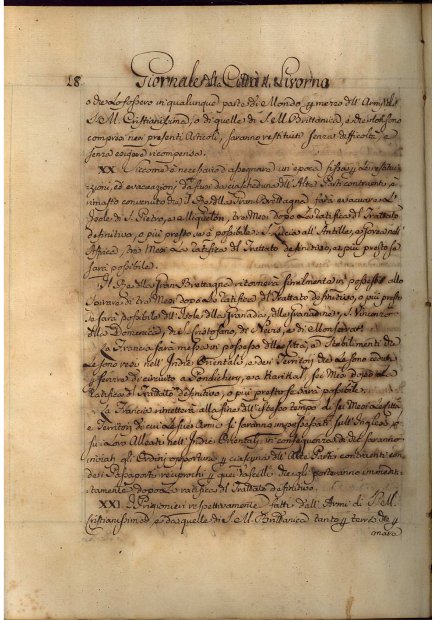 18.
Giornale della Città di Livorno
o che lo fossero in qualunque parte del Mondo p mezzo dell' Armi di
S. M. Cristianissima, o di quelle di S. M. Brittanica, e che non sono
compresi nei presenti Articoli, saranno restituiti senza difficoltà, e
senza esigere ricompensa.
XX. Siccome è necessario assegnare un' epoca fissa p le restitu-
zioni, ed evacuazioni da farsi da ciascheduna dell' Alte Parti contraenti, è
rimasto convenuto che il Re della Gran Brettagna farà evacuare l'
Isole di S. Pietro, e Miquelon, tre Mesi dopo la ratifica del Trattato
definitivo, o più presto se è possibile; S. Lucia all' Antille, e Gorea nell'
Affrica, tre Mesi la ratifica del Trattato definitivo, o più presto se
sarà possibile.
Il Re della Gran Brettagna ritornerà similmente in possesso allo
spirare di tre Mesi dopo la ratifica del Trattato definitivo, o più presto
se sarà possibile dell' Isole della Granada, delle Granadine, S. Vincenzo
della Domenica, di S. Cristofano, di Nevis, e di Monserrat.
La Francia sarà messa in possesso delle Città, e Stabilimenti che
le sono resi nell' Indie Orientali, e dei Territorj che le sono ceduti
p servire di circuito a Pondichery, e a Karikal, sei Mesi dopo la
ratifica del Trattato definitivo, o più presto se sarà possibile.
La Francia rimetterà alla fine dell' istesso tempo di sei Mesi le Città
e Territorj di cui le sue Armi si saranno impossessati sull' Inglesi, o
su i loro Alleati nell' Indie Orientali; in conseguenza di che saranno
inviati gli Ordini opportuni p ciascuna dell' Alte Parti contraenti con
dei Passaporti reciprochi p quei Vascelli che gli porteranno immedia-
tamente dopo la ratifica del Trattato definitivo.
XXI. I Prigionieri respettivamente fatti dall' Armi di S. M.
Cristianissima, e da quelle di S. M. Brittanica tanto p terra che p
mare